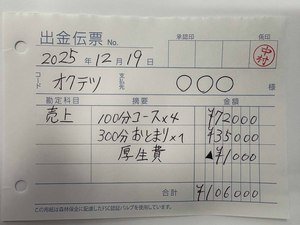 出金伝票 No.
承認印 係印
2025年12月19日 中村
コード オクテツ 支払先 ○○○ 様
勘定科目 摘要 金額
売上 100分コース×4 ¥72000
300分おとまり×1 ¥35000
厚生費 ▲¥1000
合計 ¥106000
この用紙は森林保全に配慮したFSC認証パルプを使用しています。